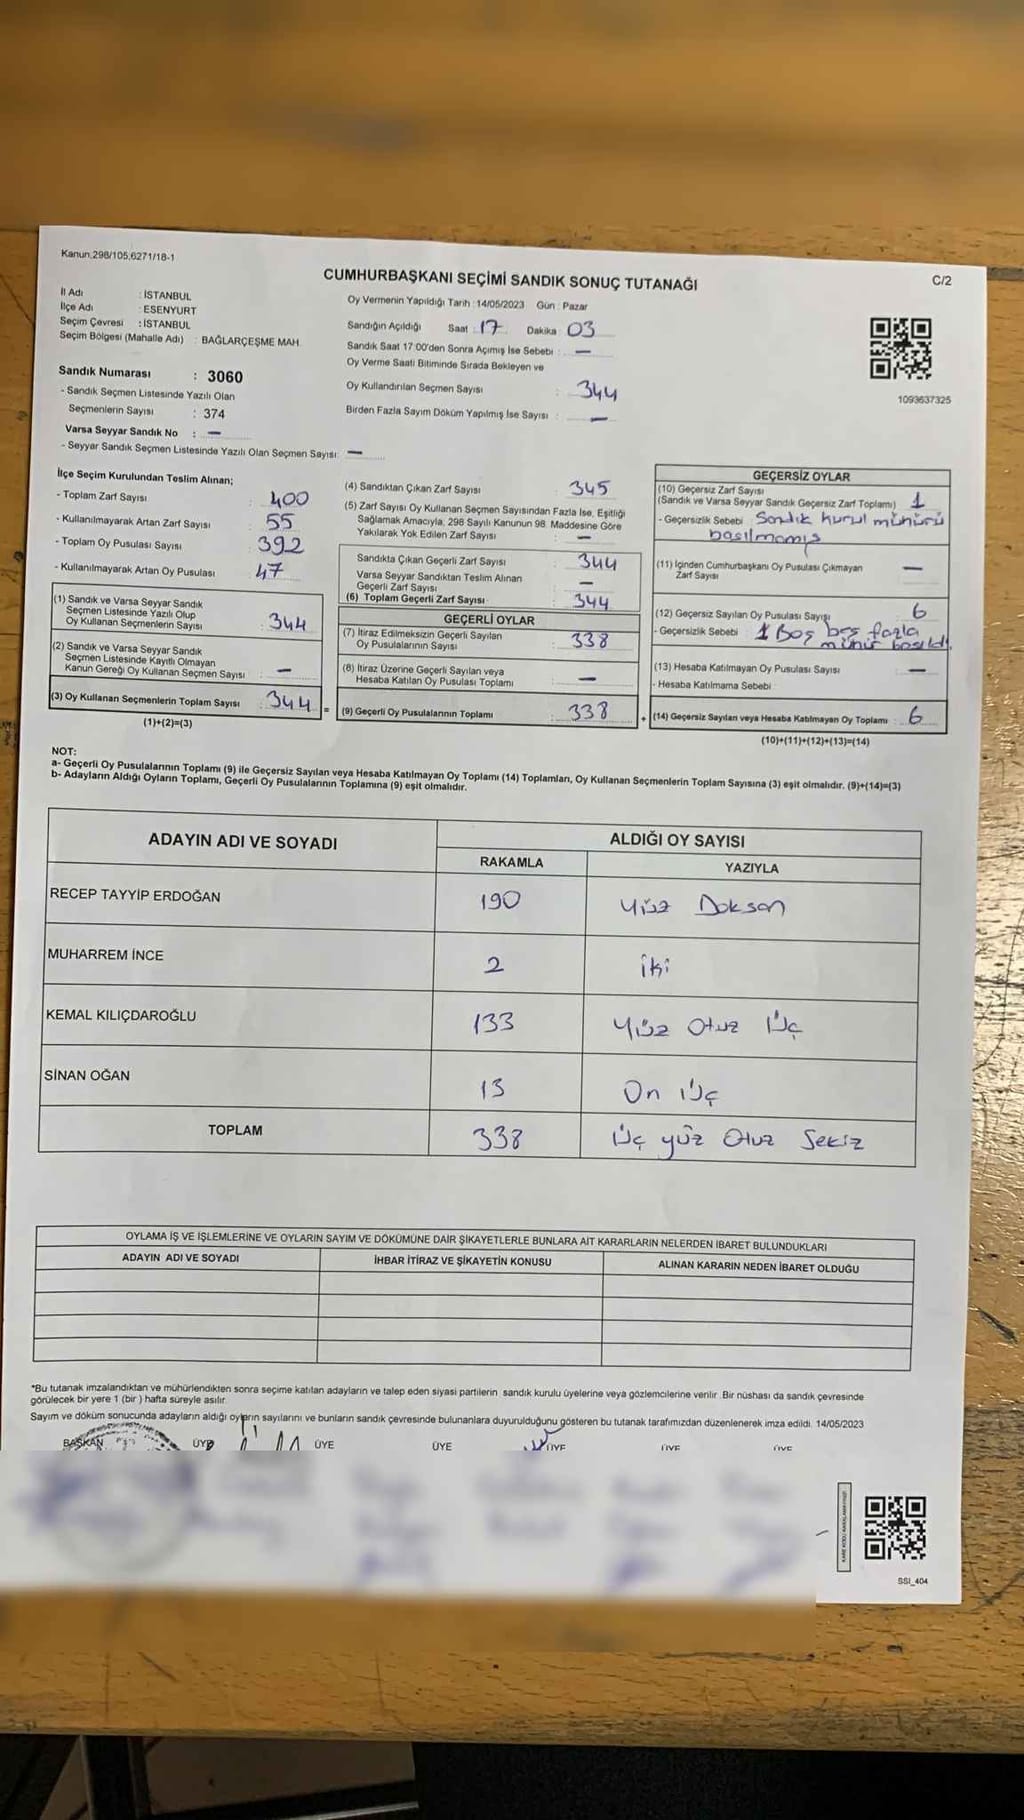 Kanun.298/105,6271/18-1
C/2
CUMHURBAŞKANI SEÇİMİ SANDIK SONUÇ TUTANAĞI
İl Adı : İSTANBUL
İlçe Adı : ESENYURT
Seçim Çevresi : İSTANBUL
Seçim Bölgesi (Mahalle Adı) : BAĞLARÇEŞME MAH.
Sandık Numarası : 3060
- Sandık Seçmen Listesinde Yazılı Olan
Seçmenlerin Sayısı : 374
Varsa Seyyar Sandık No : —
- Seyyar Sandık Seçmen Listesinde Yazılı Olan Seçmen Sayısı: —
Oy Vermenin Yapıldığı Tarih : 14/05/2023 Gün : Pazar
Sandığın Açıldığı Saat : 17 Dakika 03
Sandık Saat 17:00'den Sonra Açımış İse Sebebi : —
Oy Verme Saati Bitiminde Sırada Bekleyen ve
Oy Kullandırılan Seçmen Sayısı : 344
Birden Fazla Sayım Döküm Yapılmış İse Sayısı : —
1093637325
İlçe Seçim Kurulundan Teslim Alınan;
- Toplam Zarf Sayısı : 400
- Kullanılmayarak Artan Zarf Sayısı : 55
- Toplam Oy Pusulası Sayısı : 392
- Kullanılmayarak Artan Oy Pusulası : 47
(1) Sandık ve Varsa Seyyar Sandık
Seçmen Listesinde Yazılı Olup
Oy Kullanan Seçmenlerin Sayısı : 344
(2) Sandık ve Varsa Seyyar Sandık
Seçmen Listesinde Kayıtlı Olmayan
Kanun Gereği Oy Kullanan Seçmen Sayısı : —
(3) Oy Kullanan Seçmenlerin Toplam Sayısı : 344 =
(1)+(2)=(3)
(4) Sandıktan Çıkan Zarf Sayısı : 345
(5) Zarf Sayısı Oy Kullanan Seçmen Sayısından Fazla İse, Eşitliği
Sağlamak Amacıyla, 298 Sayılı Kanunun 98. Maddesine Göre
Yakılarak Yok Edilen Zarf Sayısı : —
Sandıkta Çıkan Geçerli Zarf Sayısı : 344
Varsa Seyyar Sandıktan Teslim Alınan
Geçerli Zarf Sayısı : —
(6) Toplam Geçerli Zarf Sayısı : 344
GEÇERLİ OYLAR
(7) İtiraz Edilmeksizin Geçerli Sayılan
Oy Pusulalarının Sayısı : 338
(8) İtiraz Üzerine Geçerli Sayılan veya
Hesaba Katılan Oy Pusulası Toplamı : —
(9) Geçerli Oy Pusulalarının Toplamı : 338 +
GEÇERSİZ OYLAR
(10) Geçersiz Zarf Sayısı
(Sandık ve Varsa Seyyar Sandık Geçersiz Zarf Toplamı) : 1
- Geçersizlik Sebebi : Sandık kurul mühürü
basılmamış
(11) İçinden Cumhurbaşkanı Oy Pusulası Çıkmayan
Zarf Sayısı : —
(12) Geçersiz Sayılan Oy Pusulası Sayısı : 6
- Geçersizlik Sebebi : 1 Boş beş fazla
mühür basıldı.
(13) Hesaba Katılmayan Oy Pusulası Sayısı : —
- Hesaba Katılmama Sebebi :
(14) Geçersiz Sayılan veya Hesaba Katılmayan Oy Toplamı : 6
(10)+(11)+(12)+(13)=(14)
NOT:
a- Geçerli Oy Pusulalarının Toplamı (9) ile Geçersiz Sayılan veya Hesaba Katılmayan Oy Toplamı (14) Toplamları, Oy Kullanan Seçmenlerin Toplam Sayısına (3) eşit olmalıdır. (9)+(14)=(3)
b- Adayların Aldığı Oyların Toplamı, Geçerli Oy Pusulalarının Toplamına (9) eşit olmalıdır.
ADAYIN ADI VE SOYADI ALDIĞI OY SAYISI
RAKAMLA YAZIYLA
RECEP TAYYİP ERDOĞAN 190 Yüz Doksan
MUHARREM İNCE 2 İki
KEMAL KILIÇDAROĞLU 133 Yüz Otuz Üç
SİNAN OĞAN 13 On Üç
TOPLAM 338 Üç yüz Otuz Sekiz
OYLAMA İŞ VE İŞLEMLERİNE VE OYLARIN SAYIM VE DÖKÜMÜNE DAİR ŞİKAYETLERLE BUNLARA AİT KARARLARIN NELERDEN İBARET BULUNDUKLARI
ADAYIN ADI VE SOYADI İHBAR İTİRAZ VE ŞİKAYETİN KONUSU ALINAN KARARIN NEDEN İBARET OLDUĞU
*Bu tutanak imzalandıktan ve mühürlendikten sonra seçime katılan adayların ve talep eden siyasi partilerin sandık kurulu üyelerine veya gözlemcilerine verilir. Bir nüshası da sandık çevresinde
görülecek bir yere 1 (bir) hafta süreyle asılır.
Sayım ve döküm sonucunda adayların aldığı oyların sayılarını ve bunların sandık çevresinde bulunanlara duyurulduğunu gösteren bu tutanak tarafımızdan düzenlenerek imza edildi. 14/05/2023
BAŞKAN ÜYE ÜYE ÜYE ÜYE ÜYE ÜYE
SSI_404